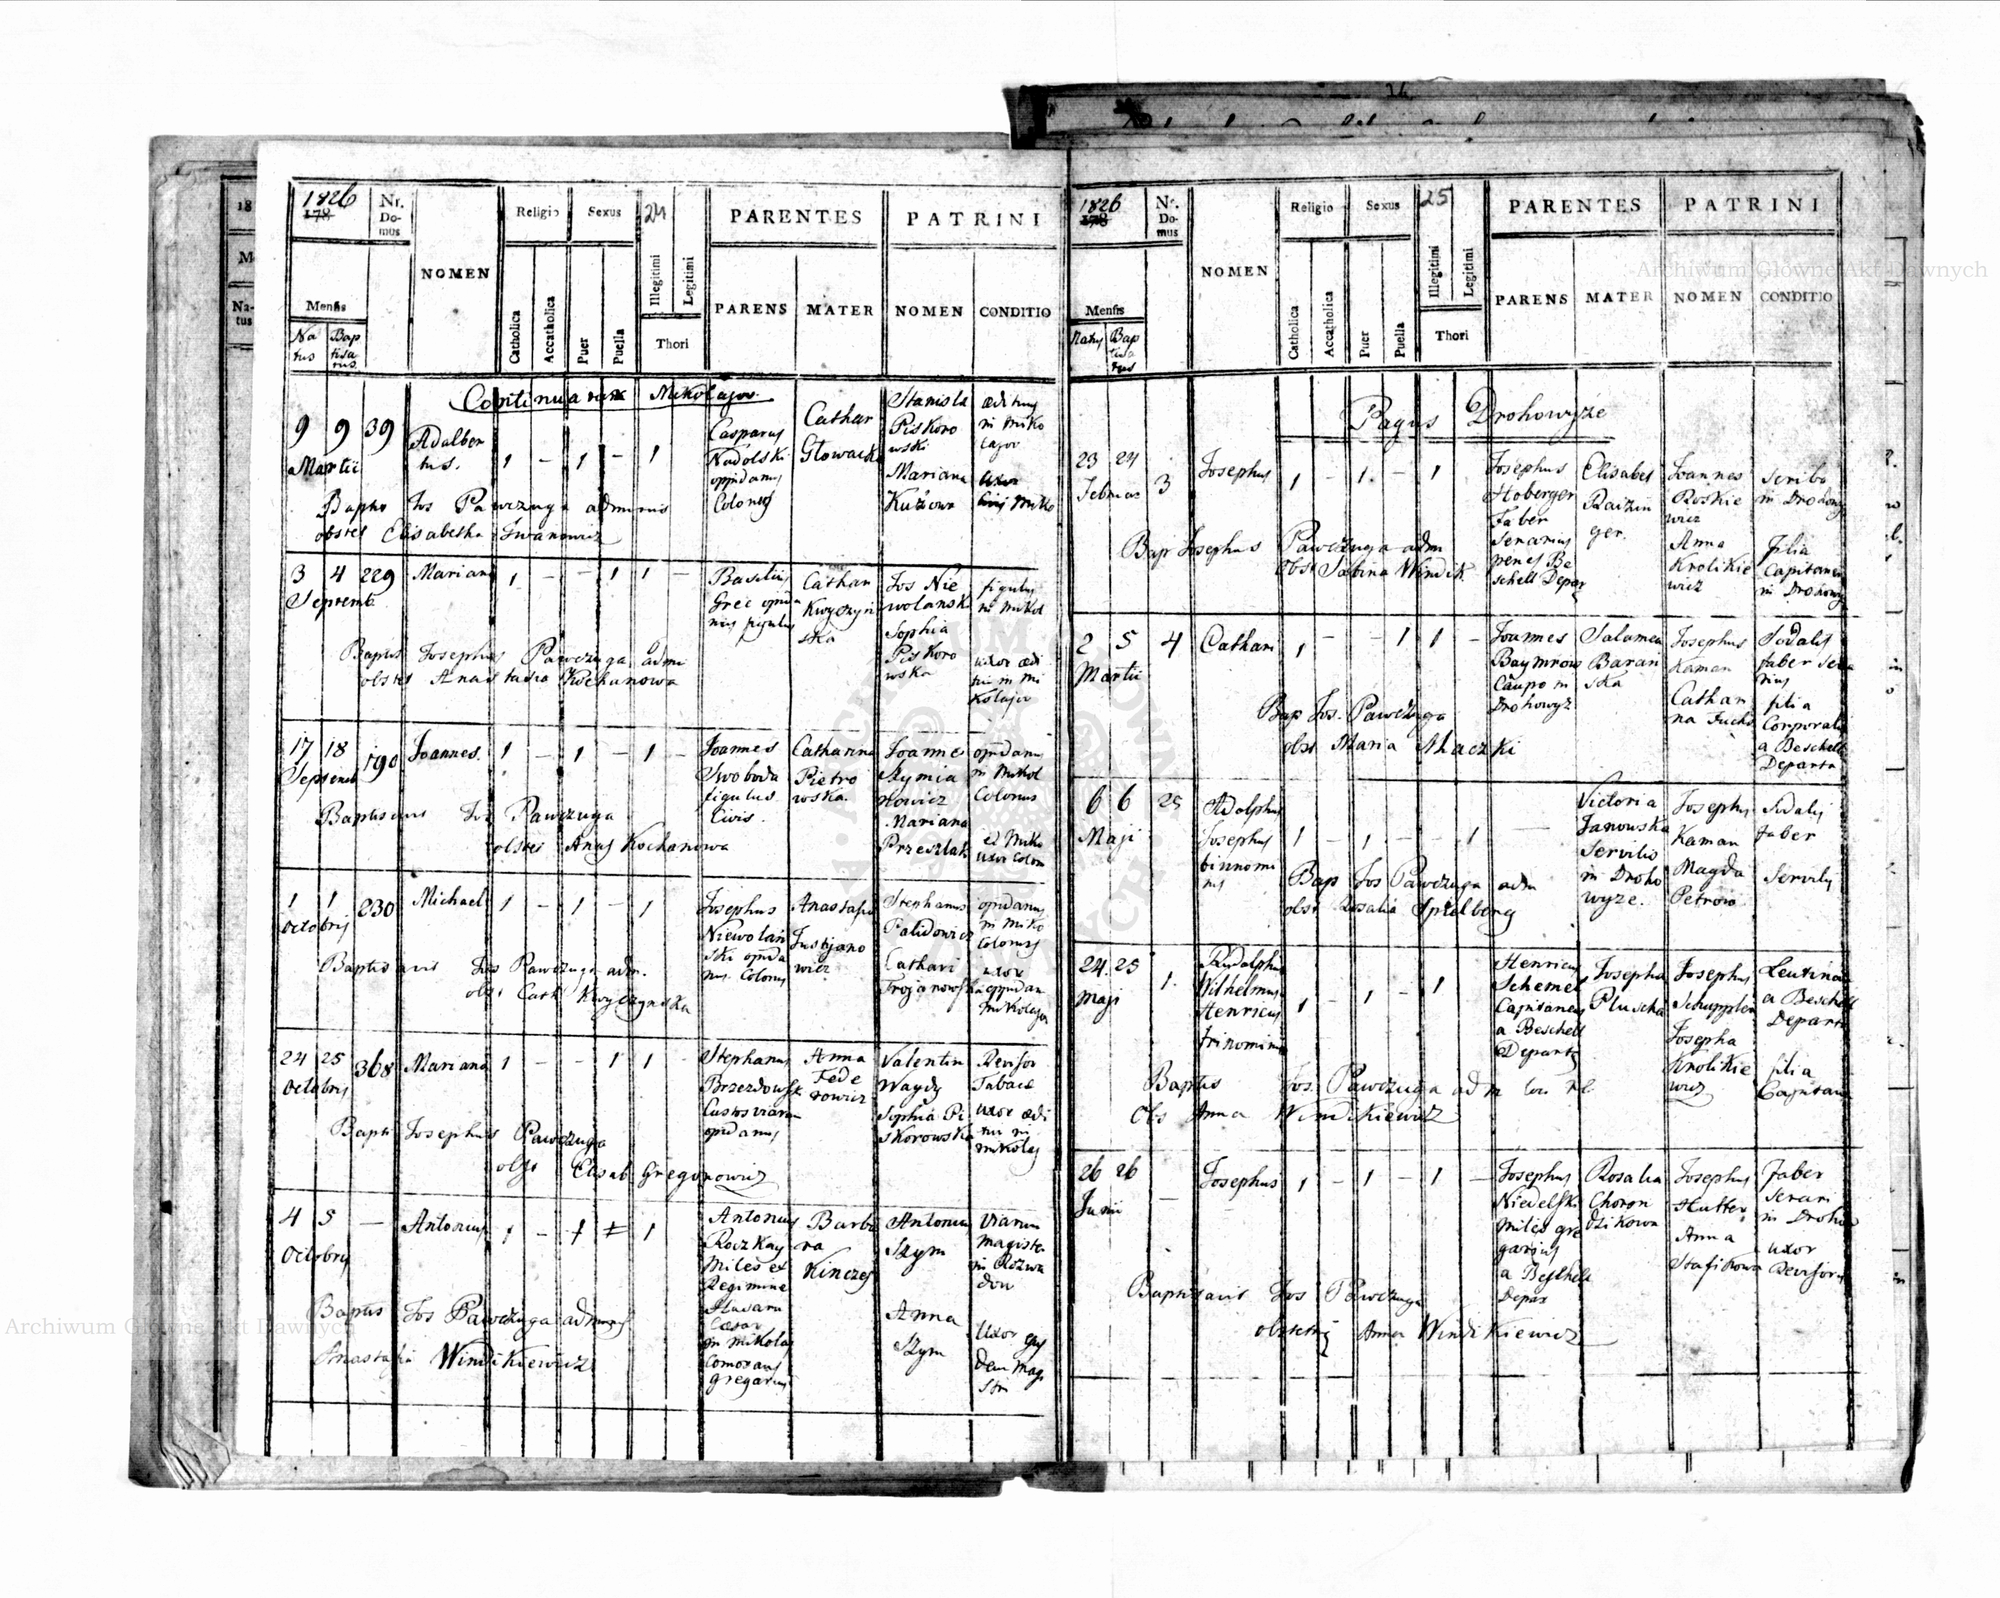 1826
178
Nr.
Do-
mus
NOMEN
Religio
Sexus
24
PARENTES
PATRINI
Mensis
Na
tus
Bap
tisa
tus
Catholica
Accatholica
Puer
Puella
Illegitimi
Legitimi
Thori
PARENS
MATER
NOMEN
CONDITIO
9 9 39
Martii
Adalber
tus.
1 – 1 – 1
Casparus
Nadolski
oppidanus
Colonus
Cathar
Glowacka
Stanisla
Piskoro
wski
Mariana
Kużowa
Baptis Jos Pawczuga adminis
obstet Elisabetha Iwanowicz
3 4 229
Septemb
Mariana
1 – – 1 1
Basilius
Grec opida
nus figulus
Cathar
Kwyczyń
ska
Jos Nie
wolanski
Sophia
Piskoro
wska
figulus
in Mikol
uxor ædi
tui in Mi
kolajow
Baptis Josephus Pawczuga admi
obstet Anastasia Kochanowa
17 18 190
Septemb
Joannes.
1 – 1 – 1 –
Joannes
Swoboda
figulus
Civis.
Catharina
Pietro
wska.
Joannes
Szymia
nowicz
Mariana
Przeszlak
opidanus
in Mikol
Colonus
Baptisavit Jos Pawczuga
obstet Anas Kochanowa
1 1 230
Octobris
Michael
1 – 1 – 1
Josephus
Niewolań
ski opida
nus Colonus
Anastasia
Justyano
wicz
Stephanus
Falidowicz
Cathari
Trojanowska
opidanus
in Miko
Colonus
uxor
opidan
Mikolajow
Baptisavit Jos Pawczuga adm.
obst Cath Kwyczynska
24 25 368
Octobris
Mariana
1 – – 1 1 –
Stephanus
Brzezdowski
Custos viarum
opidanus
Anna
Fede
rowicz
Valentin
Wagdy
Sophia Pi
skorowska
Revisor
Tabac
uxor ædi
tui in
Mikolaj
Bapti Josephus Pawczuga
obst Elisab Gregorowicz
4 5 –
Octobris
Antonius
1 – 1 – 1
Antonius
Roczkay
Miles ex
Regimine
Husaru
Cæsar
in Mikolaj
Comorans
gregarius
Barba
ra
Kinczes
Antonius
Szym
Anna
Szym
viarum
magister
in Rozwa
dow
Uxor ejus
dem magi
stri
Baptis Jos Pawczuga adminis
Anastasia Windikiewicz
1826
178
Nr.
Do-
mus
NOMEN
Religio
Sexus
25
PARENTES
PATRINI
Mensis
Natus
Bap
tisa
tus
Catholica
Accatholica
Puer
Puella
Illegitimi
Legitimi
Thori
PARENS
MATER
NOMEN
CONDITIO
Pagus Drohowyże
23 24 3
Februar
Josephus
1 – 1 – 1
Josephus
Hoberger
Faber
Serarius
penes Be
schell Depar
Elisabet
Raizin
ger.
Joannes
Roskie
wicz
Anna
Krolikie
wicz
Scriba
in Drohowyz
Filia
Capitanei
in Drohowyz
Bap Josephus Pawczuga adm
obst Sabina Windik
2 5 4
Martii
Cathari
1 – – 1 1 –
Joannes
Baymrow
Caupo in
Drohowyz
Salomea
Baran
ska
Josephus
Kaman
Cathari
na Fuchs
Sodalis
faber Sera
rius
filia
Corporalis
a Beschell
Departa
Bap Jos. Pawczuga
obst Maria Maczki
6 6 25
Maji
Adolphus
Josephus
binnomi
nis
1 – 1 – 1 –
Victoria
Janowska
Servilis
in Droho
wyze.
Josephus
Kaman
Magda
Petrow
Sodalis
Faber
Servilis
Bap Jos Pawczuga adm
obst Rosalia Spielberg
24 25 1.
Maji
Rudolphus
Wilhelmus
Henricus
trinominis
1 – 1 – 1
Henricus
Schemel
Capitaneus
a Beschell
Departa
Josepha
Pluscha
Josephus
Schuppler
Josepha
Krolikie
wicz
Leutinan
a Beschell
Departa
filia
Capitanei
Baptis Jos. Pawczuga adm
Obs Anna Windikiewicz
26 26 –
Junii
Josephus
1 – 1 – 1 –
Josephus
Niedelski
Miles gre
garius
a Beschell
Depar
Rosalia
Choron
dzikowna
Josephus
Hutter
Anna
Stafikowa
Faber
Serari
in Droho
uxor
Revisoris
Baptisavit Jos Pawczuga
obstetrix Anna Windikiewicz
Archiwum Główne Akt Dawnych
Archiwum Główne Akt Dawnych